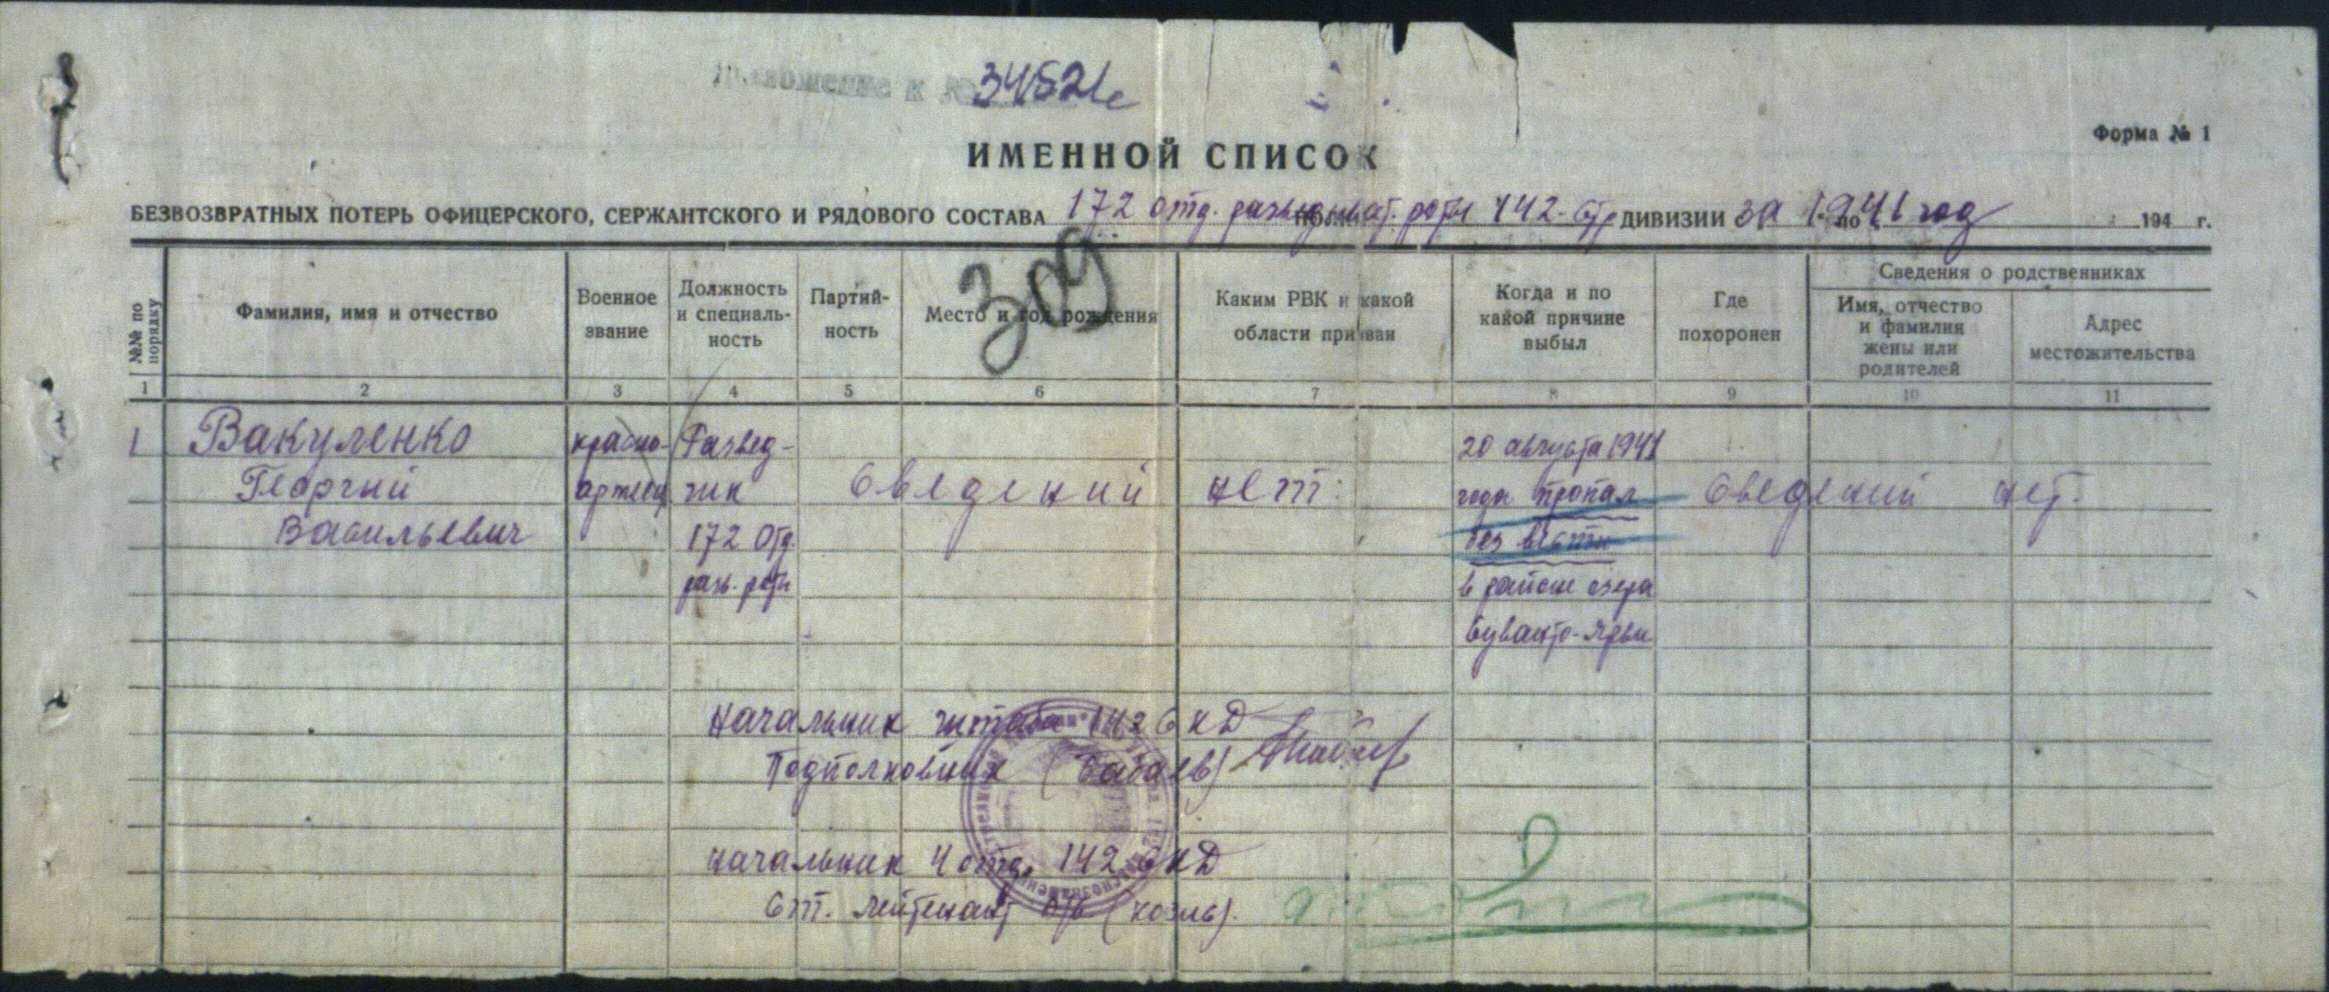 Приложение к № 34521с
Форма № 1
ИМЕННОЙ СПИСОК
БЕЗВОЗВРАТНЫХ ПОТЕРЬ ОФИЦЕРСКОГО, СЕРЖАНТСКОГО И РЯДОВОГО СОСТАВА 172 отд. разведыват. роты 142 стр ДИВИЗИИ за 1941 год по 194 г.
309
№№ по порядку
Фамилия, имя и отчество
Военное звание
Должность и специаль-
ность
Партий-
ность
Место и год рождения
Каким РВК и какой
области призван
Когда и по
какой причине
выбыл
Где
похоронен
Сведения о родственниках
Имя, отчество
и фамилия
жены или
родителей
Адрес
местожительства
1 2 3 4 5 6 7 8 9 10 11
1 Вакуленко красно- Развед- 20 августа 1941
Георгий армеец чик Сведений нет. года пропал Сведений нет.
Васильевич 172 отд. без вести
разв. роты в районе озера
Суванто-Ярви
Начальник штаба 142 СКД
Подполковник (Бабаев)
Начальник 4 отд. 142 СКД
Ст. лейтенант а/с (Козив).